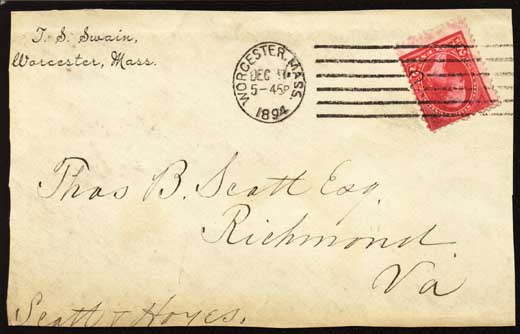 T. S. Swain,
Worcester, Mass.
WORCESTER, MASS.
DEC
5-45P
1894
Thos B. Scott Esq.
Richmond
Va
Scott & Hoyes.